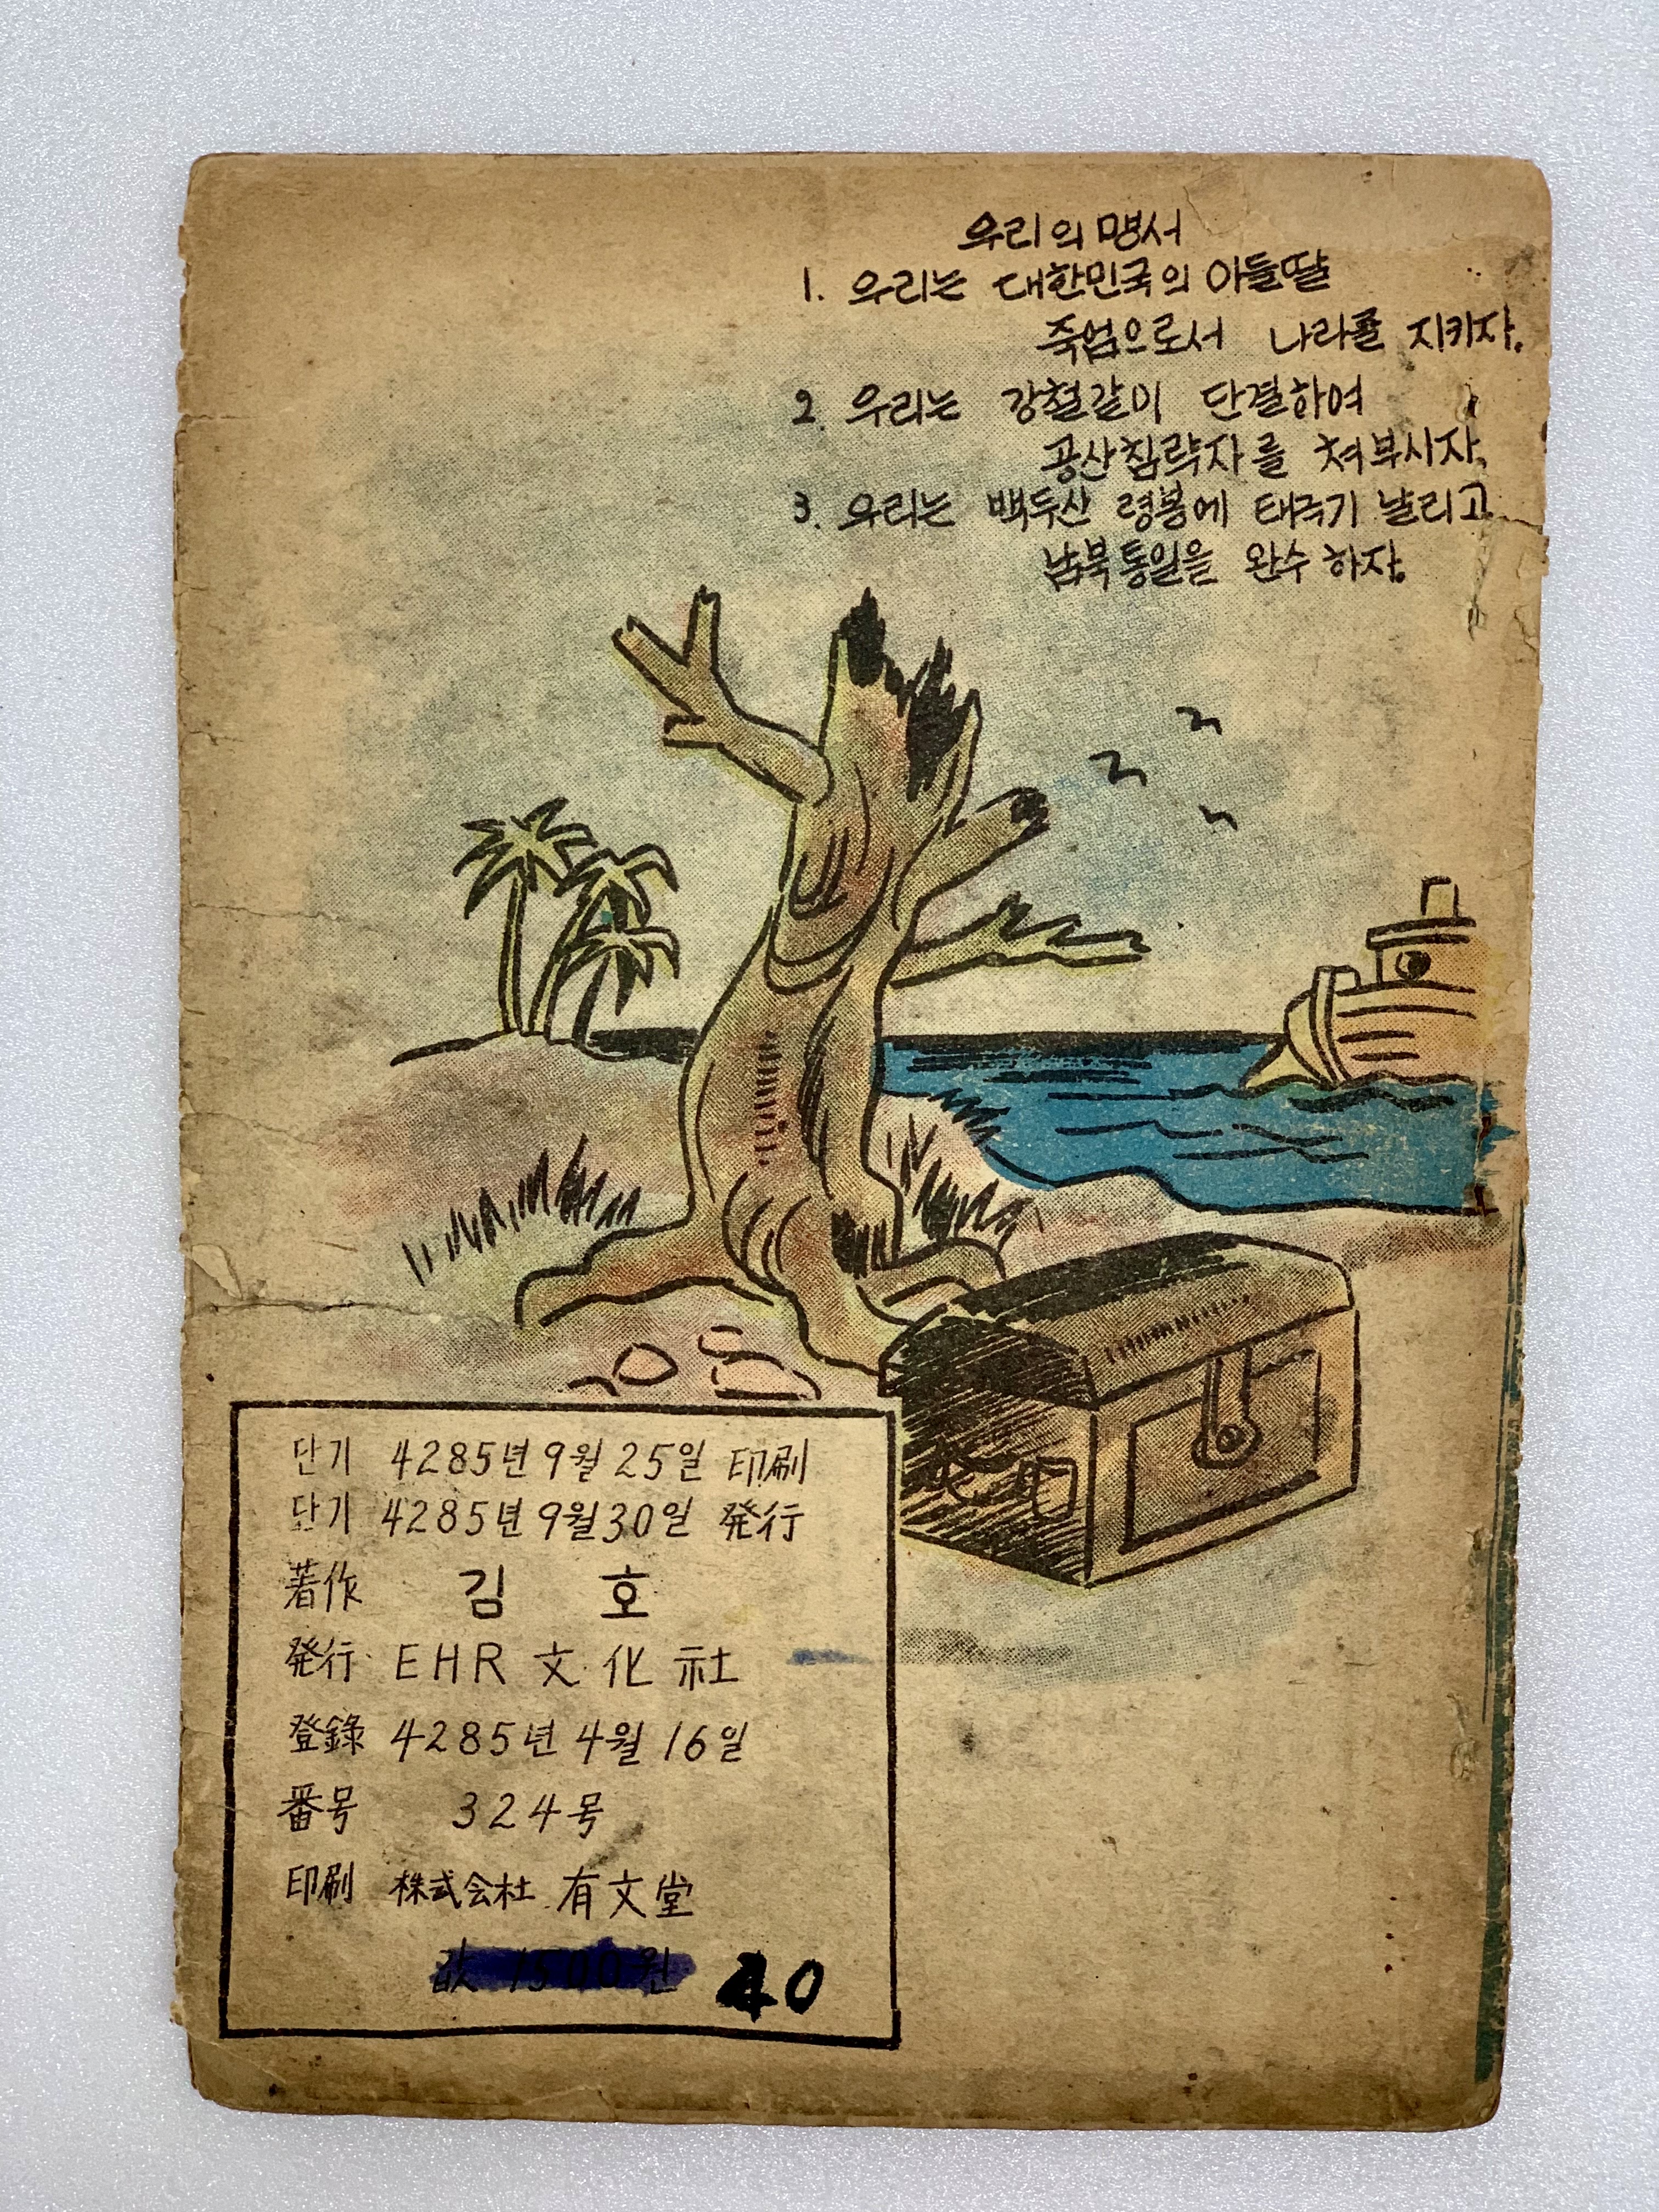 우리의 맹서
1. 우리는 대한민국의 아들딸
죽엄으로서 나라를 지키자.
2. 우리는 강철같이 단결하여
공산침략자를 처부시자.
3. 우리는 백두산 령봉에 태극기 날리고
남북통일을 완수하자.
단기 4285년 9월 25일 印刷
단기 4285년 9월 30일 発行
著作 김 호
発行 EHR 文化社
登錄 4285년 4월 16일
番号 324号
印刷 株式会社 有文堂
값 1500원 40